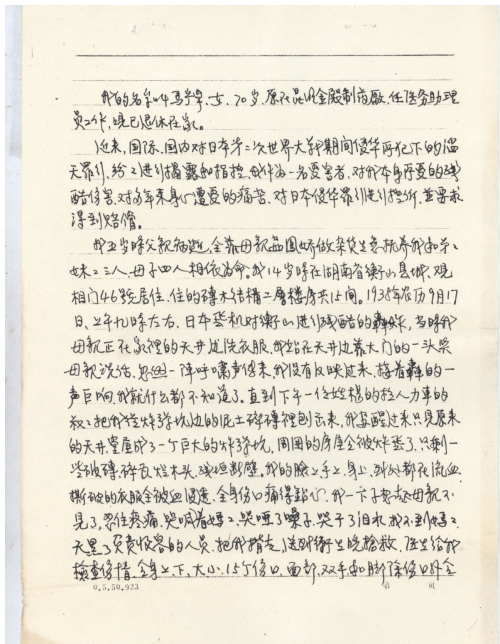 我的名字叫马学翠,女,70岁,原在昆明金殿制药厰,任医务助理
员工作,现已退休在家。
近来,国际、国内对日本第二次世界大战期间侵华所犯下的滔
天罪行,给以进行揭露和指控,我作为一名受害者,对我本身所受的残
酷伤害,对多年来身心遭受的痛苦,对日本侵华罪行进行控诉,并要求
得到赔偿。
我五岁时父親病逝,全靠母親
做杂货生意抚养我和弟弟
妹妹三人,母子四人相依为命。我14岁时在湖南省衡山县城,观
相门46號居住,住的磚木结構二層楼房共12间。1938年农历9月17
日,上午九时左右,日本飞机对衡山进行残酷的轟炸,当时我
母親正在家裡的天井边洗衣服,我站在天井边靠大门的一头與
母親说话,忽然一阵呼嘯声传来,我没有反映过来,接着轟的一
声巨响,我就什么都不知道了,直到下午一位姓楊的拉人力車的
叔叔把我從炸弹坑边的泥土碎磚裡刨出来,我甦醒过来只見原来
的天井,堂屋成了一个巨大的炸弹坑,周围的房屋全被炸塌了,只剩一
些破磚、碎瓦烂木头,残垣断壁。我的臉上手上身上,到处都在流血,
撕破的衣服全被血浸透,全身伤口痛得鑽心,我一下子想起母親不
見了,忍住疼痛,哭喊着媽媽,哭哑了嗓子,哭干了泪水,找不到媽媽,
天黑了负责收容的人员,把我揹走,送到衛生院搶救,医生给我
檢查伤情,全身上下,大小15个伤口,面部、双手和脚除伤口外全
0.5.50.923